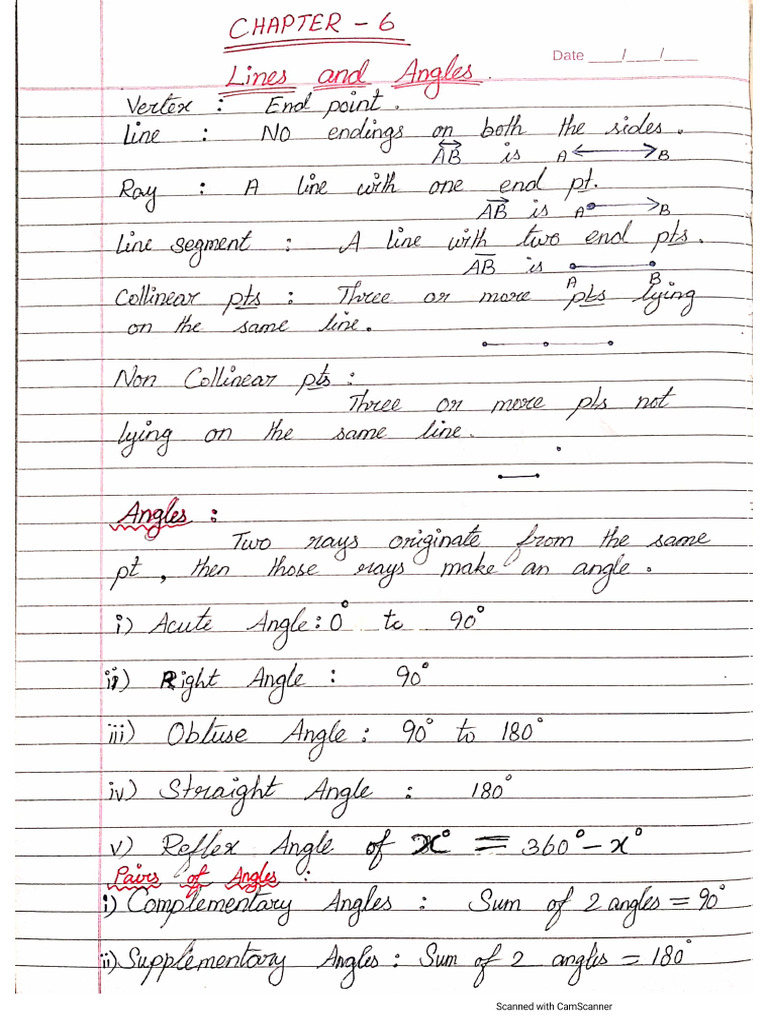 CHAPTER - 6
Date ___/___/___
Lines and Angles.
Vertex : End point.
Line : No endings on both the sides.
AB is A B
Ray : A line with one end pt.
AB is A B
Line segment : A line with two end pts.
AB is A B
Collinear pts : Three or more pts lying
on the same line.
Non Collinear pts :
Three or more pts not
lying on the same line.
Angles :
Two rays originate from the same
pt, then those rays make an angle.
i) Acute Angle : 0° to 90°
ii) Right Angle : 90°
iii) Obtuse Angle : 90° to 180°
iv) Straight Angle : 180°
v) Reflex Angle of x° = 360° - x°
Pairs of Angles :
i) Complementary Angles : Sum of 2 angles = 90°
ii) Supplementary Angles : Sum of 2 angles = 180°
Scanned with CamScanner